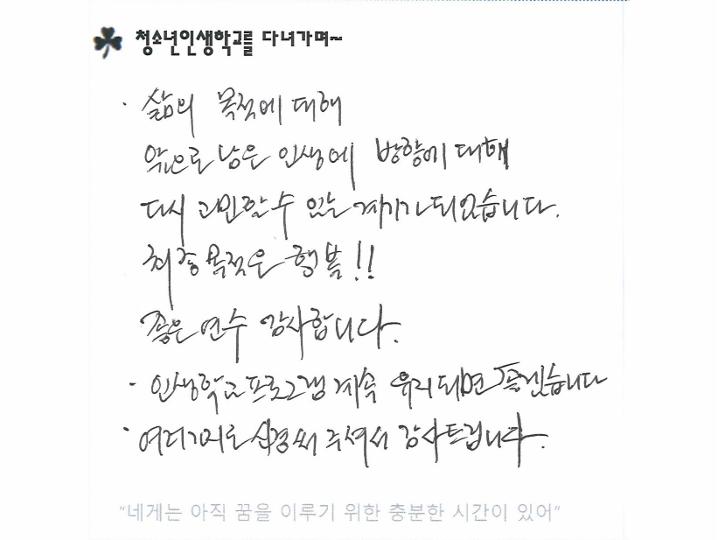 청소년인생학교를 다녀가며~
· 삶의 목적에 대해
앞으로 남은 인생에 방향에 대해
다시 고민할 수 있는 계기가 되었습니다.
최종 목적은 행복!!
좋은 연수 감사합니다.
· 인생학교 프로그램 계속 유지되면 좋겠습니다
· 여러가지로 신경써 주셔서 감사드립니다.
"네게는 아직 꿈을 이루기 위한 충분한 시간이 있어"